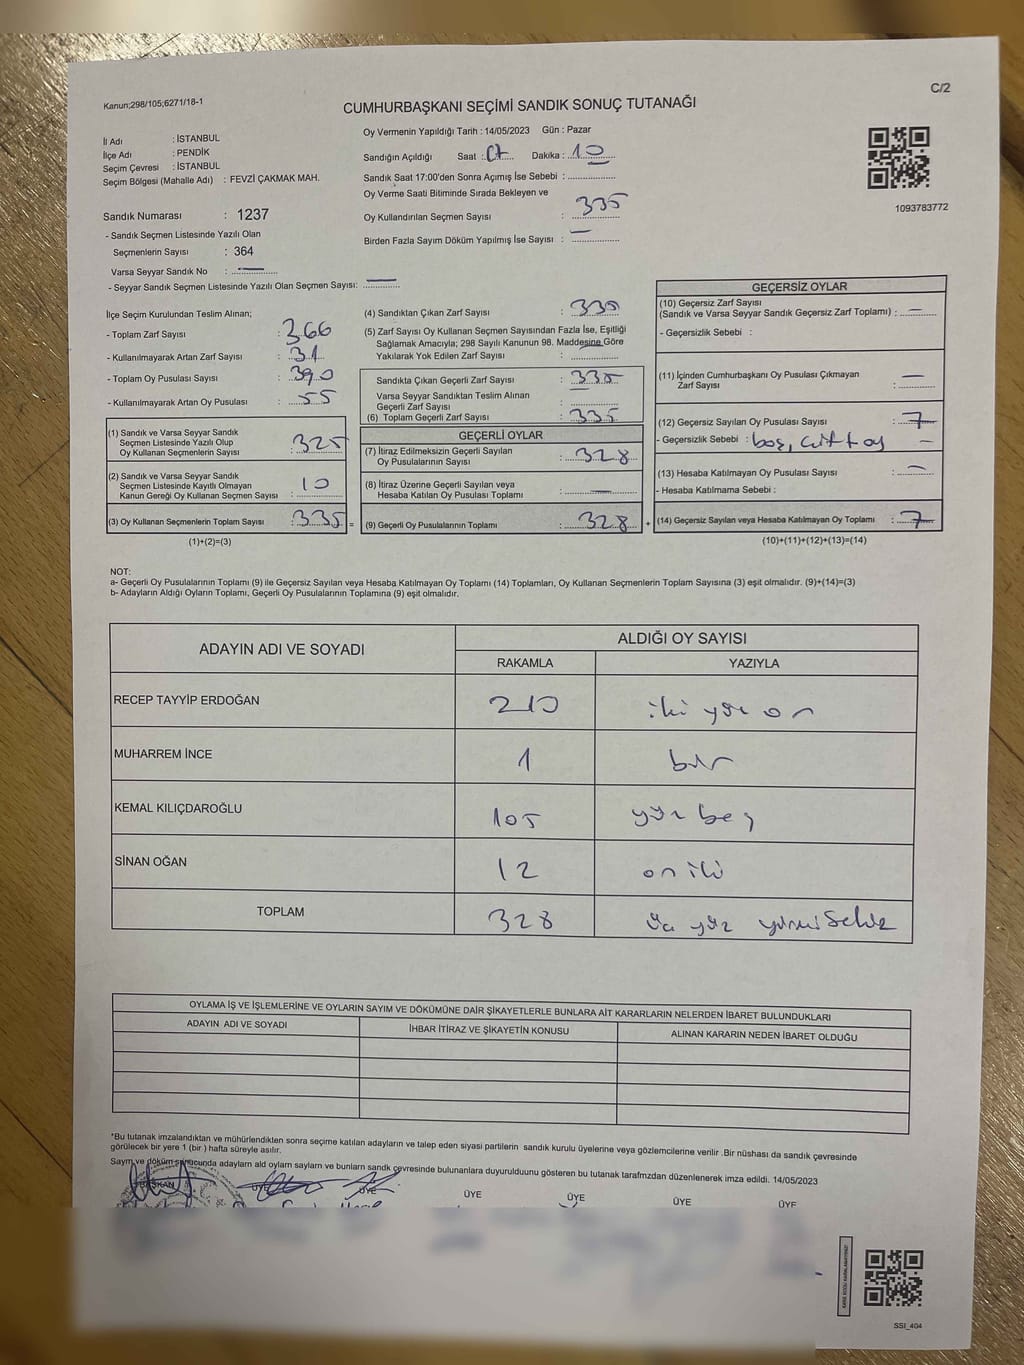 Kanun;298/105;6271/18-1
C/2
CUMHURBAŞKANI SEÇİMİ SANDIK SONUÇ TUTANAĞI
İl Adı : İSTANBUL
İlçe Adı : PENDİK
Seçim Çevresi : İSTANBUL
Seçim Bölgesi (Mahalle Adı) : FEVZİ ÇAKMAK MAH.
Oy Vermenin Yapıldığı Tarih : 14/05/2023 Gün : Pazar
Sandığın Açıldığı Saat : Dakika : 10
Sandık Saat 17:00'den Sonra Açımış İse Sebebi :
Oy Verme Saati Bitiminde Sırada Bekleyen ve
Oy Kullandırılan Seçmen Sayısı : 335
Birden Fazla Sayım Döküm Yapılmış İse Sayısı : —
1093783772
Sandık Numarası : 1237
- Sandık Seçmen Listesinde Yazılı Olan
Seçmenlerin Sayısı : 364
Varsa Seyyar Sandık No : —
- Seyyar Sandık Seçmen Listesinde Yazılı Olan Seçmen Sayısı: —
İlçe Seçim Kurulundan Teslim Alınan;
- Toplam Zarf Sayısı : 366
- Kullanılmayarak Artan Zarf Sayısı : 31
- Toplam Oy Pusulası Sayısı : 390
- Kullanılmayarak Artan Oy Pusulası : 55
(1) Sandık ve Varsa Seyyar Sandık
Seçmen Listesinde Yazılı Olup
Oy Kullanan Seçmenlerin Sayısı : 325
(2) Sandık ve Varsa Seyyar Sandık
Seçmen Listesinde Kayıtlı Olmayan
Kanun Gereği Oy Kullanan Seçmen Sayısı : 10
(3) Oy Kullanan Seçmenlerin Toplam Sayısı : 335 =
(1)+(2)=(3)
(4) Sandıktan Çıkan Zarf Sayısı : 335
(5) Zarf Sayısı Oy Kullanan Seçmen Sayısından Fazla İse, Eşitliği
Sağlamak Amacıyla; 298 Sayılı Kanunun 98. Maddesine Göre
Yakılarak Yok Edilen Zarf Sayısı :
Sandıkta Çıkan Geçerli Zarf Sayısı : 335
Varsa Seyyar Sandıktan Teslim Alınan
Geçerli Zarf Sayısı :
(6) Toplam Geçerli Zarf Sayısı : 335
GEÇERLİ OYLAR
(7) İtiraz Edilmeksizin Geçerli Sayılan
Oy Pusulalarının Sayısı : 328
(8) İtiraz Üzerine Geçerli Sayılan veya
Hesaba Katılan Oy Pusulası Toplamı : —
(9) Geçerli Oy Pusulalarının Toplamı : 328 +
GEÇERSİZ OYLAR
(10) Geçersiz Zarf Sayısı
(Sandık ve Varsa Seyyar Sandık Geçersiz Zarf Toplamı) : —
- Geçersizlik Sebebi :
(11) İçinden Cumhurbaşkanı Oy Pusulası Çıkmayan
Zarf Sayısı : —
(12) Geçersiz Sayılan Oy Pusulası Sayısı : 7
- Geçersizlik Sebebi : boş, çift oy —
(13) Hesaba Katılmayan Oy Pusulası Sayısı : —
- Hesaba Katılmama Sebebi :
(14) Geçersiz Sayılan veya Hesaba Katılmayan Oy Toplamı : 7
(10)+(11)+(12)+(13)=(14)
NOT:
a- Geçerli Oy Pusulalarının Toplamı (9) ile Geçersiz Sayılan veya Hesaba Katılmayan Oy Toplamı (14) Toplamları, Oy Kullanan Seçmenlerin Toplam Sayısına (3) eşit olmalıdır. (9)+(14)=(3)
b- Adayların Aldığı Oyların Toplamı, Geçerli Oy Pusulalarının Toplamına (9) eşit olmalıdır.
ADAYIN ADI VE SOYADI ALDIĞI OY SAYISI
RAKAMLA YAZIYLA
RECEP TAYYİP ERDOĞAN 210 iki yüz on
MUHARREM İNCE 1 bir
KEMAL KILIÇDAROĞLU 105 yüz beş
SİNAN OĞAN 12 on iki
TOPLAM 328 üç yüz yirmi sekiz
OYLAMA İŞ VE İŞLEMLERİNE VE OYLARIN SAYIM VE DÖKÜMÜNE DAİR ŞİKAYETLERLE BUNLARA AİT KARARLARIN NELERDEN İBARET BULUNDUKLARI
ADAYIN ADI VE SOYADI İHBAR İTİRAZ VE ŞİKAYETİN KONUSU ALINAN KARARIN NEDEN İBARET OLDUĞU
*Bu tutanak imzalandıktan ve mühürlendikten sonra seçime katılan adayların ve talep eden siyasi partilerin sandık kurulu üyelerine veya gözlemcilerine verilir .Bir nüshası da sandık çevresinde
görülecek bir yere 1 (bir ) hafta süreyle asılır.
Sayım ve döküm sonucunda adayların ald oyların sayları ve bunların sandk çevresinde bulunanlara duyurulduunu gösteren bu tutanak tarafmzdan düzenlenerek imza edildi. 14/05/2023
BAŞKAN ÜYE ÜYE ÜYE ÜYE ÜYE ÜYE
SSI_404